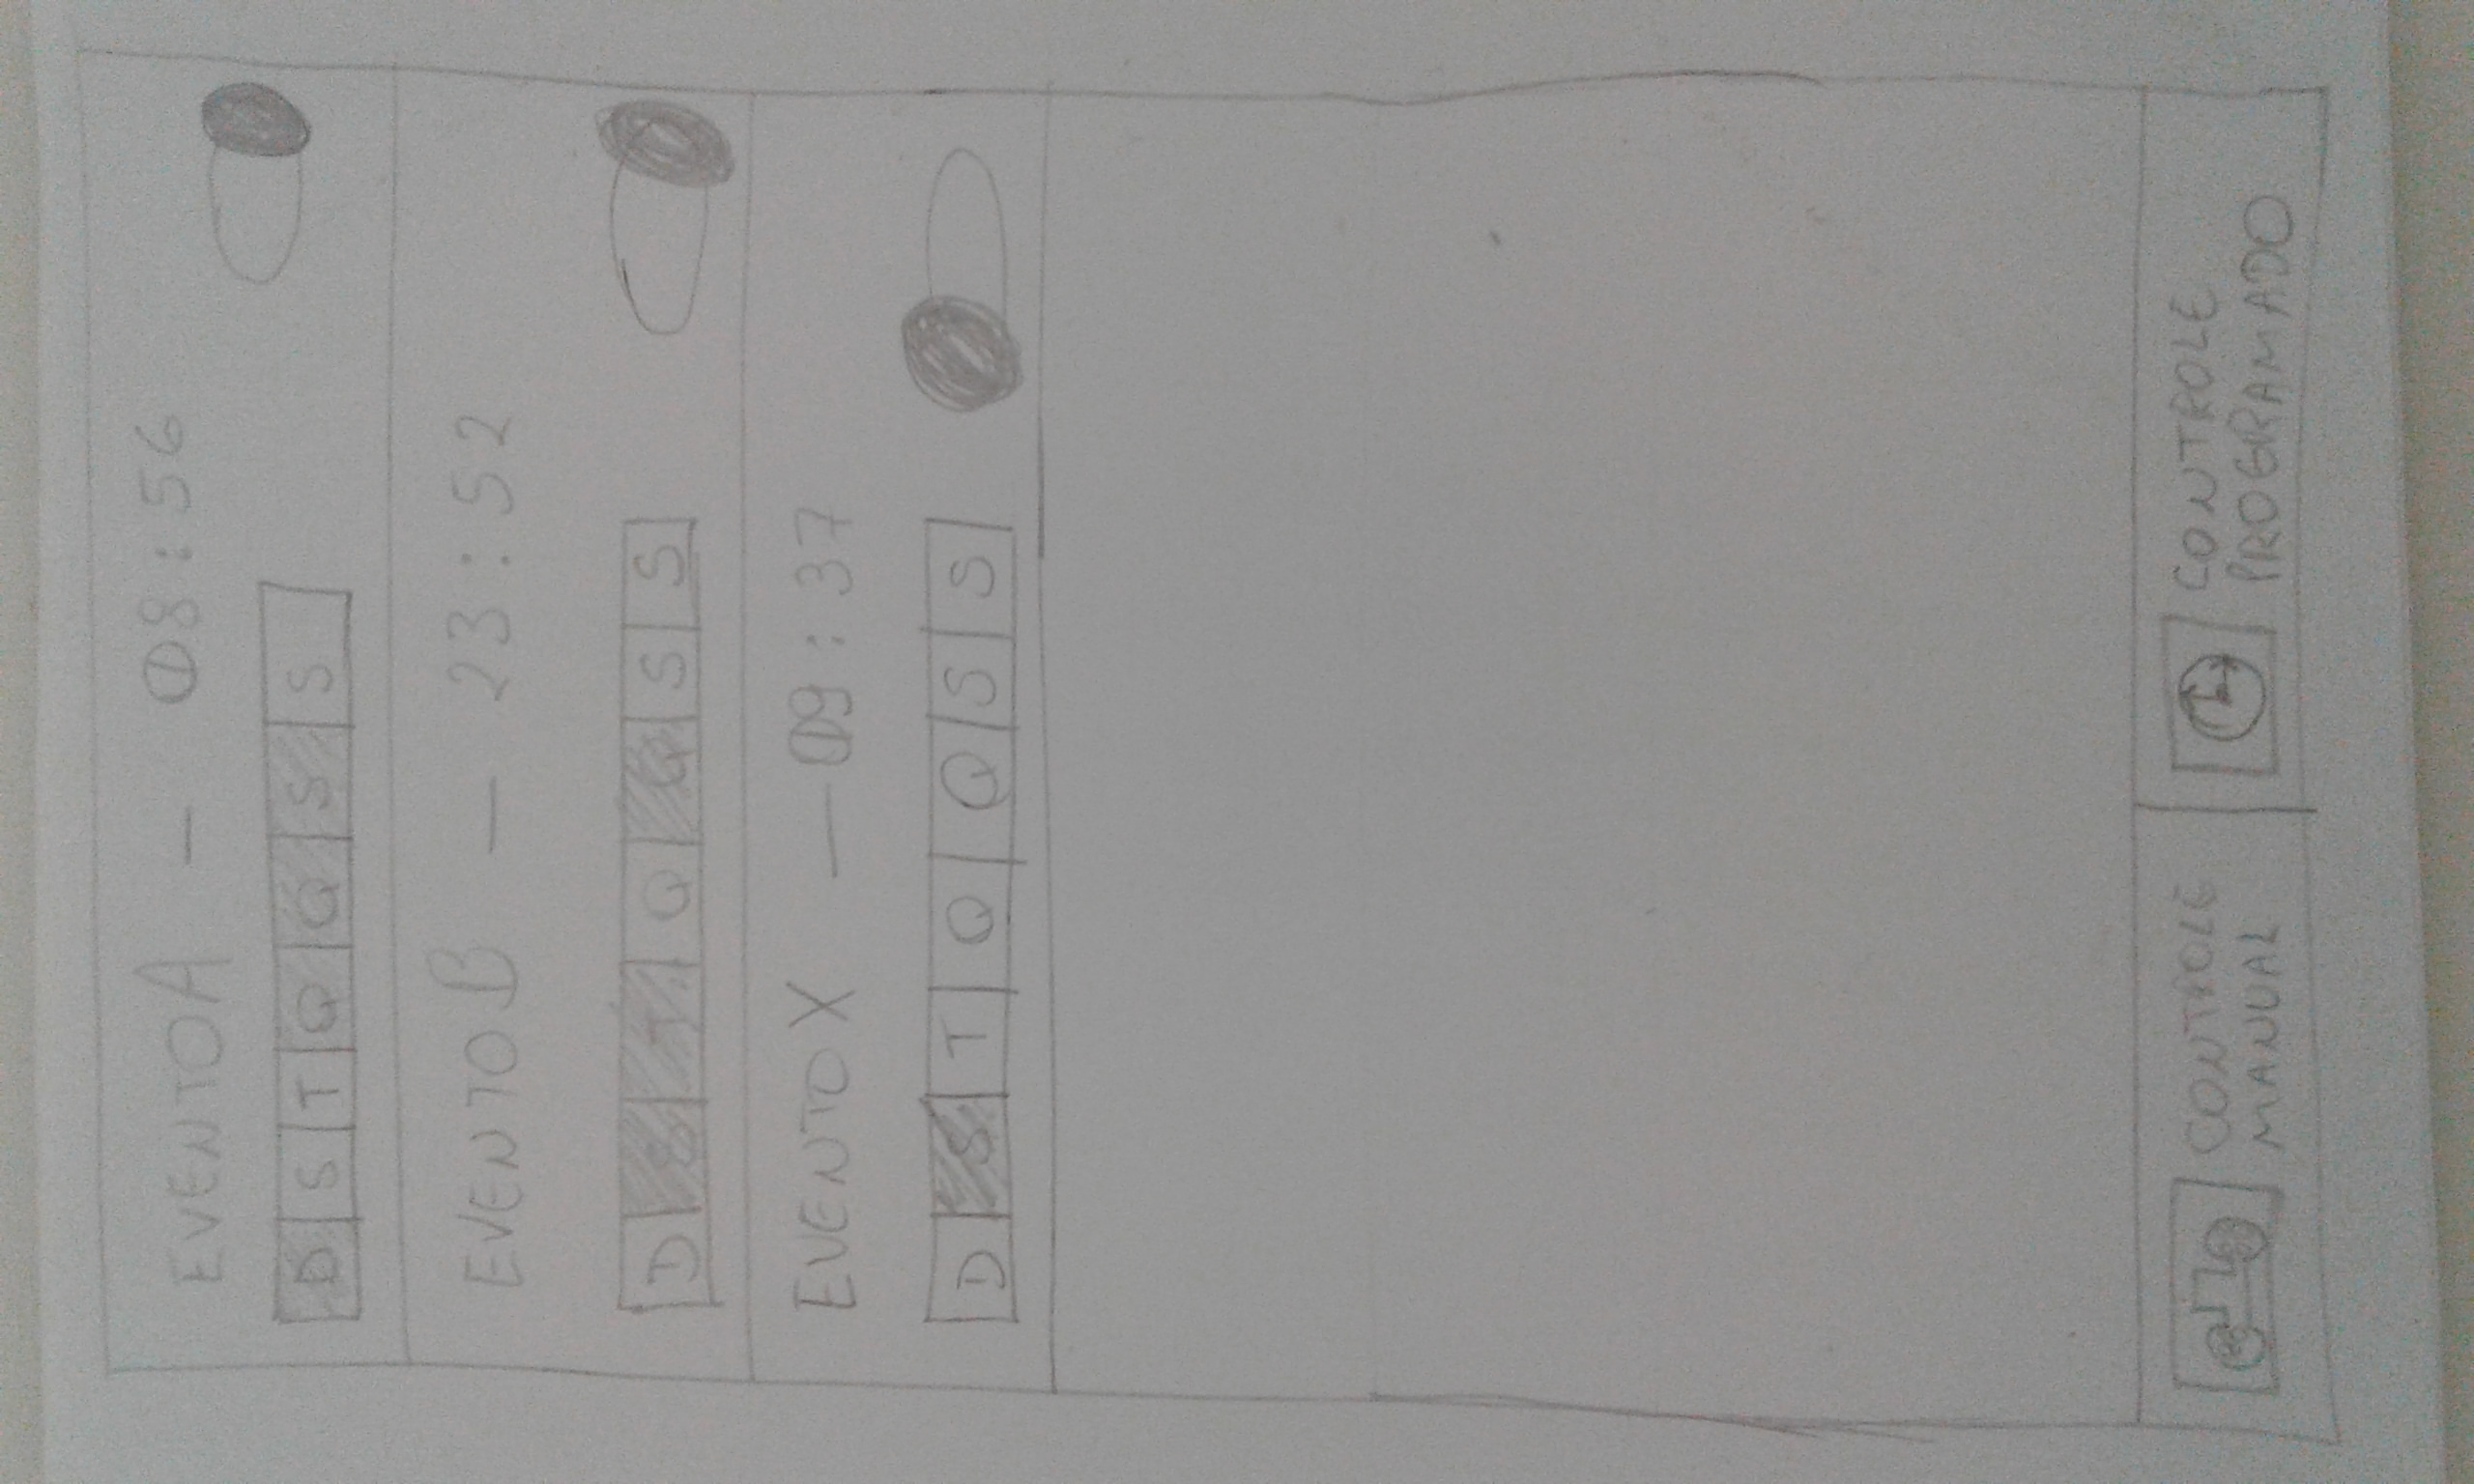 EVENTO A — 08:56
D S T Q Q S S
EVENTO B — 23:52
D S T Q Q S S
EVENTO X — 09:37
D S T Q Q S S
CONTROLE
MANUAL
CONTROLE
PROGRAMADO